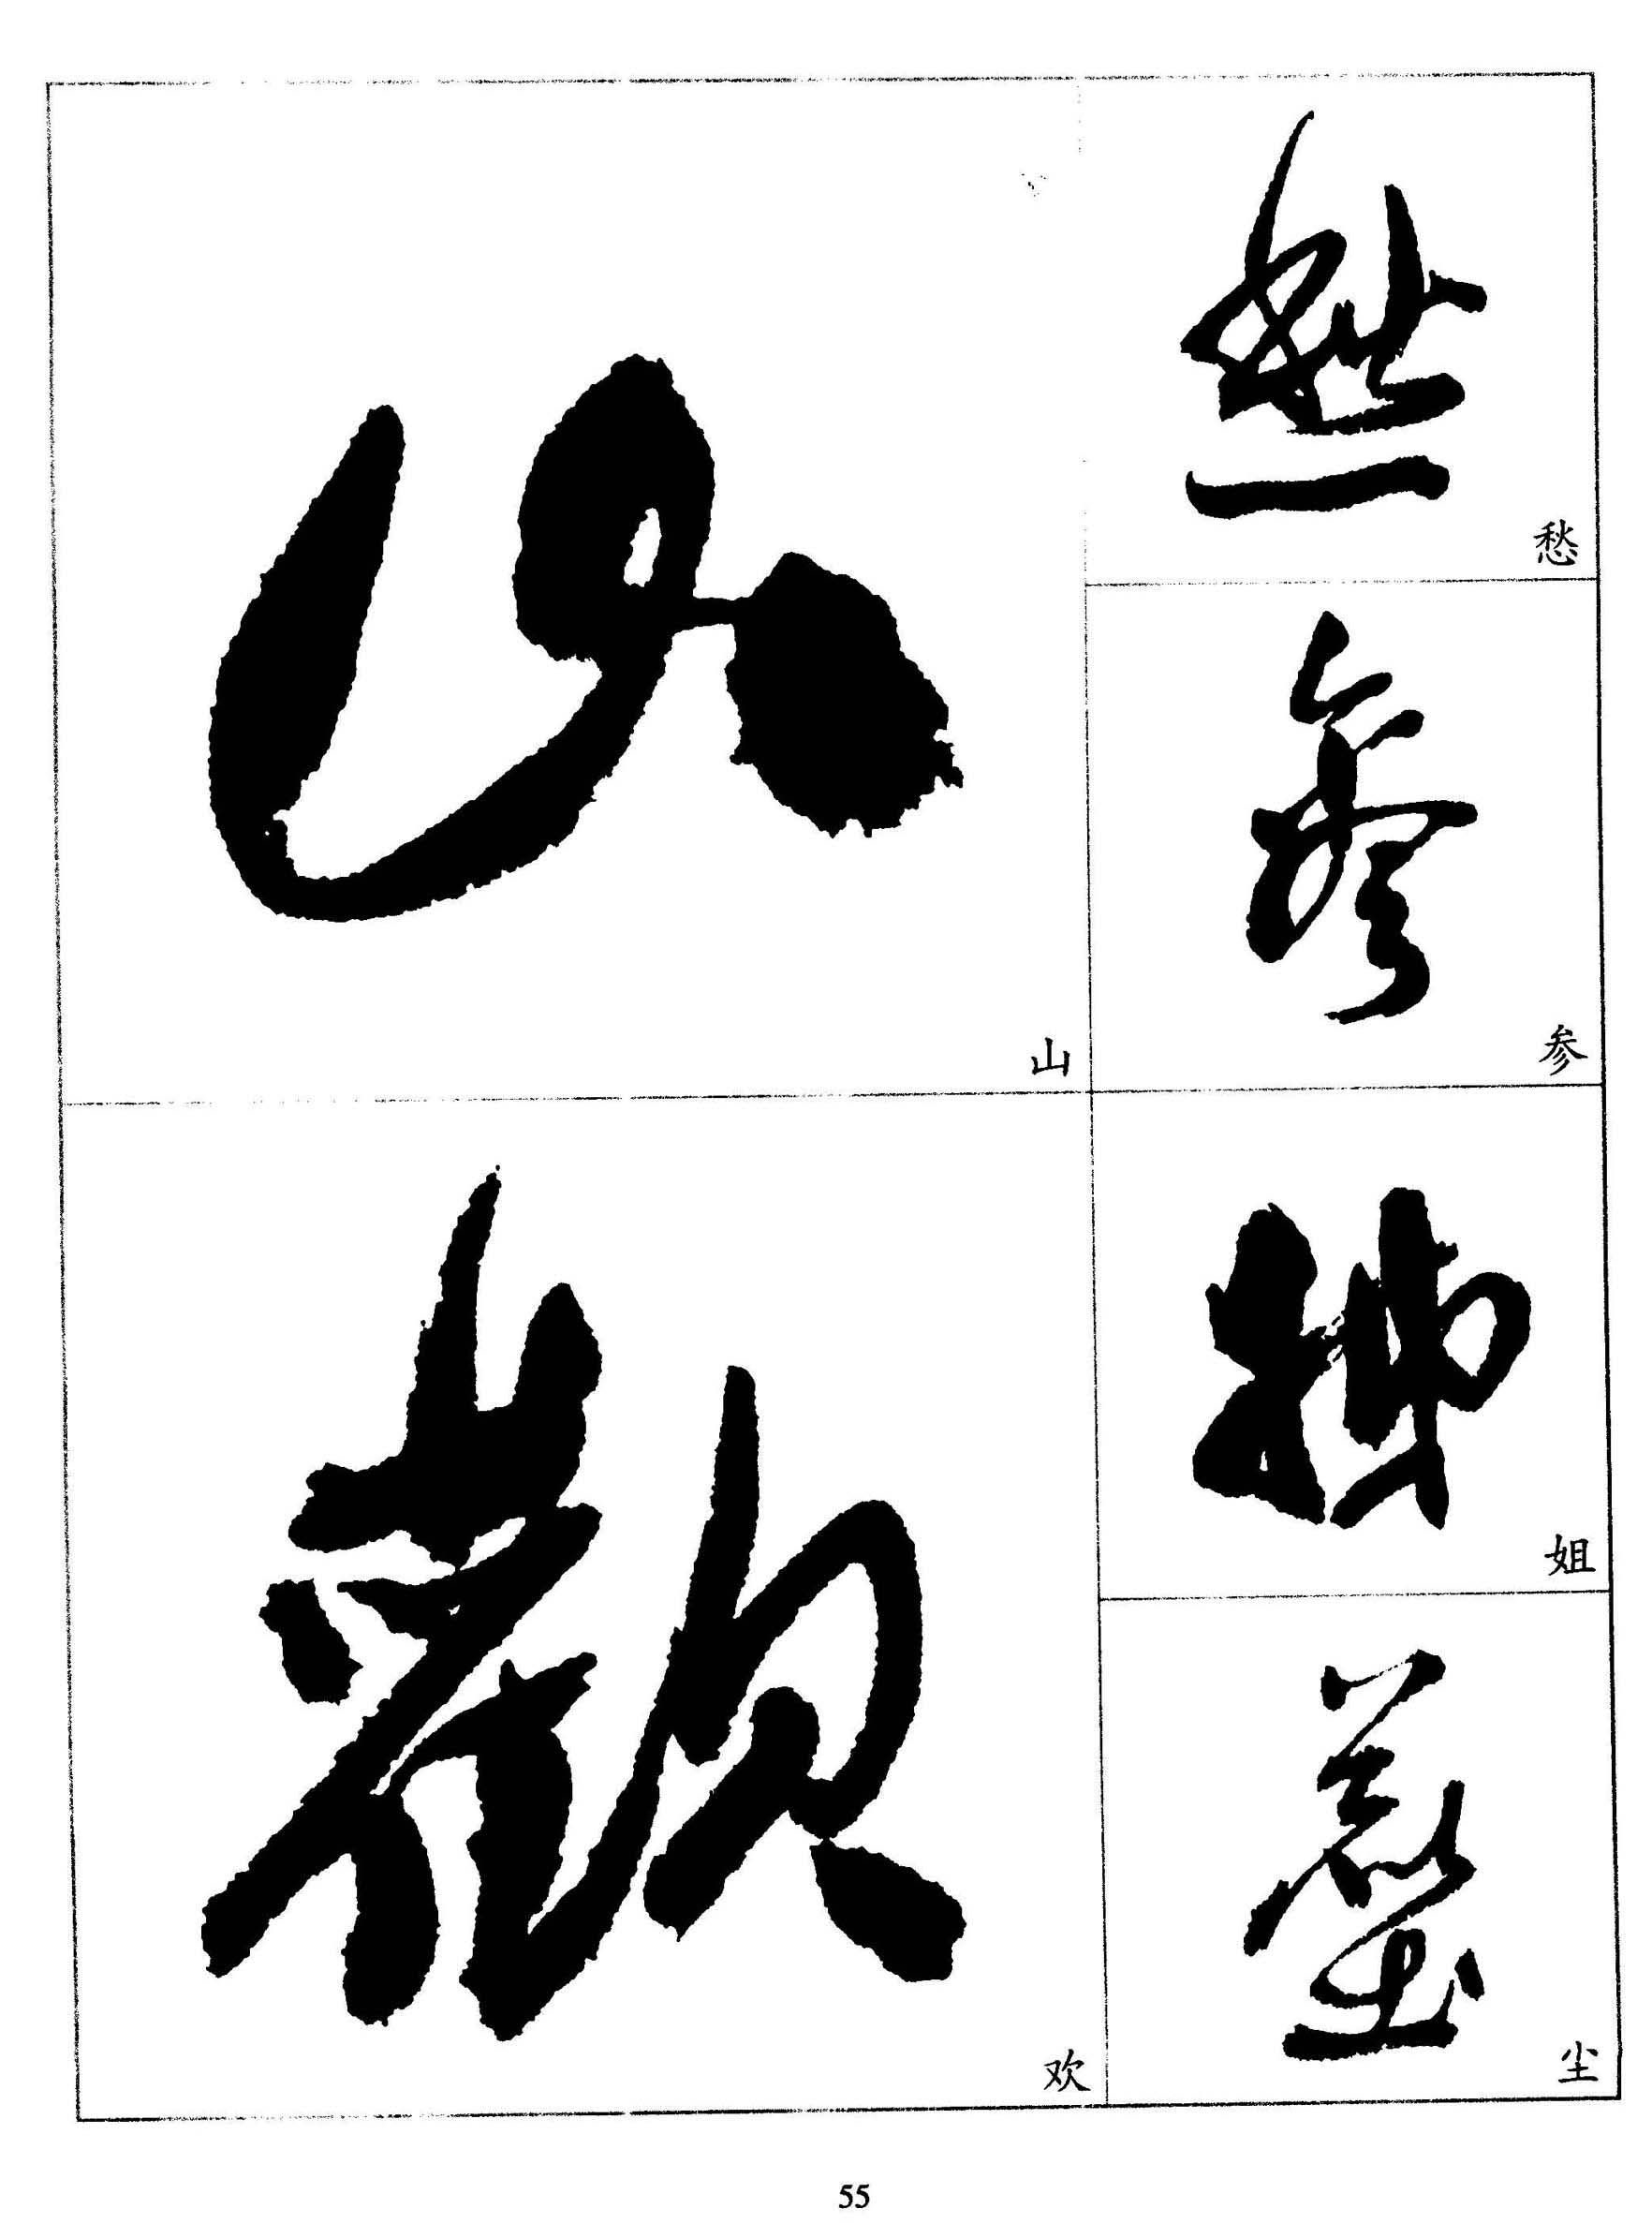 愁
参
姐
尘
山
欢
55